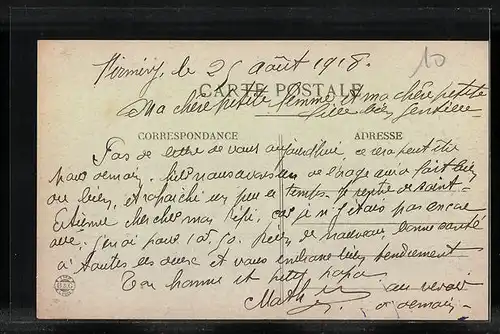 le 25 août 1918.
CARTE POSTALE
Ma chère petite femme et ma chère petite
fille bien gentille
CORRESPONDANCE ADRESSE
Pas de lettre de vous aujourd'hui, ce sera peut être
pour demain. hier nous avons eu de l'orage qui a fait bien
du bien, et rafraichi un peu le temps. Je rentre de Saint-
Etienne chercher mon car je n'y étais pas encore
allé, j'en ai pour 1 50. Rien de nouveau, bonne santé
à toutes les deux et vous embrasse bien tendrement
Ton homme et petit papa
au revoir
à demain.
10